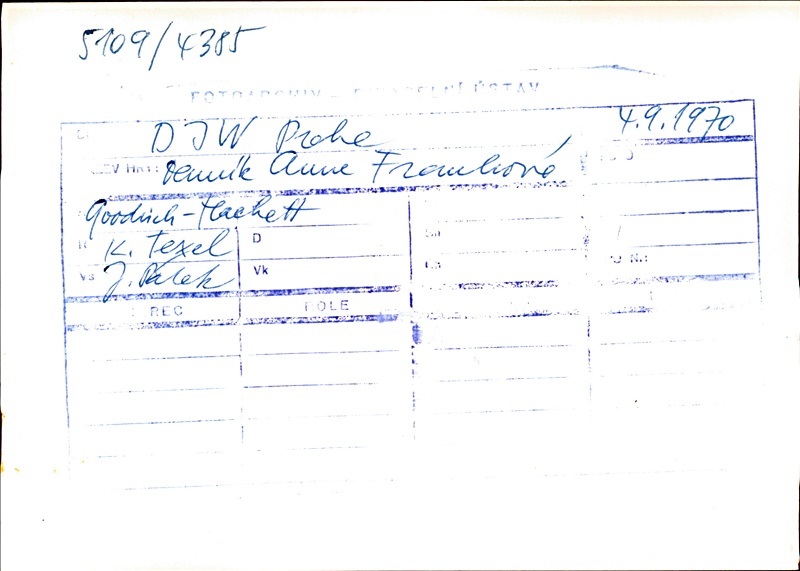 5109/4385
FOTOARCHIV – DIVADELNÍ ÚSTAV
DJW Praha 4.9.1970
Denník Anne Frankové
Goodrich-Hackett
K. Texel D
Vs J. Pálek Vk
REC ROLE